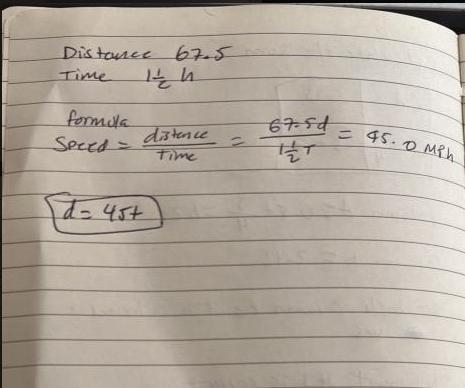 Distance 67.5
Time 1 1/2 h
formula
Speed = distence / Time = 67.5d / 1 1/2 T = 45.0 MPh
d = 45t